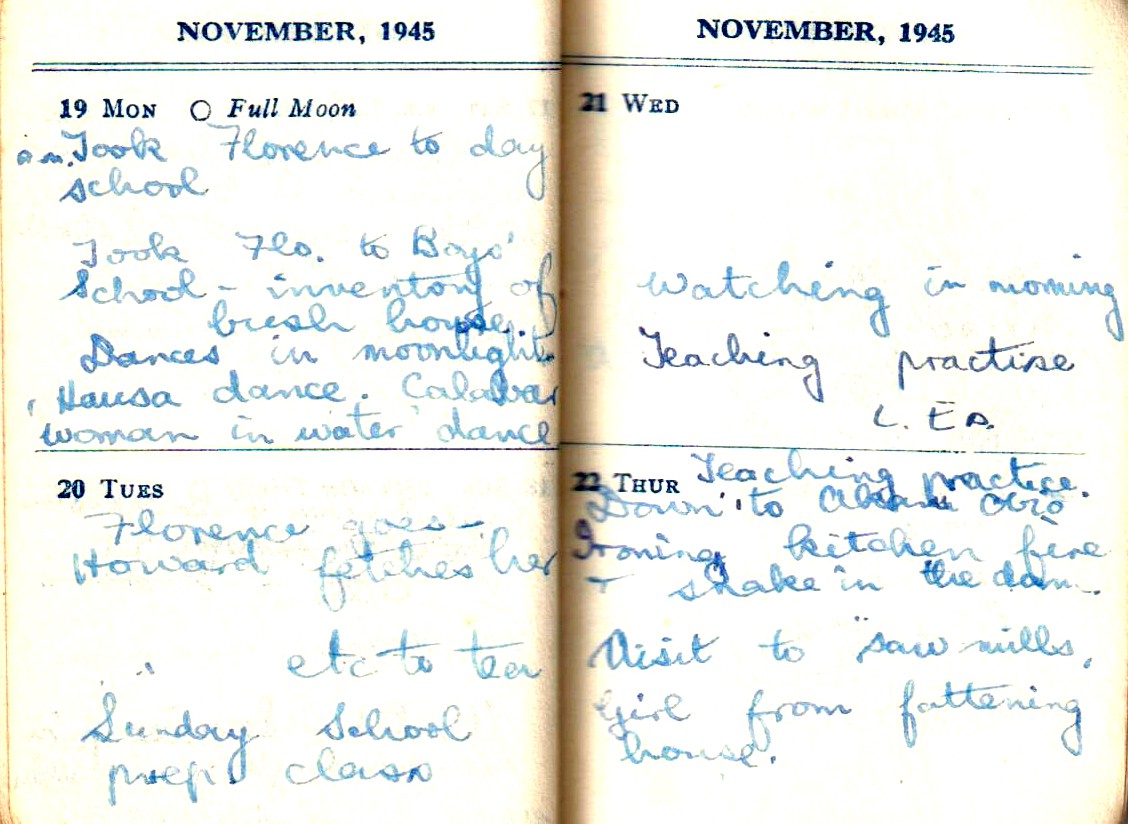 NOVEMBER, 1945
19 MON Full Moon
a.m. Took Florence to day
school
Took Flo. to Boys'
School - inventory of
bush house.
Dances in moonlight.
Hausa dance. Calabar
'woman in water' dance
20 TUES
Florence goes -
Howard fetches her
etc to tea
Sunday School
prep class
NOVEMBER, 1945
21 WED
Watching in morning
Teaching practise
L. Ed.
22 THUR Teaching practice.
Down to
Ironing, kitchen fire
+ snake in the dam.
Visit to saw mills,
Girl from fattening
house.